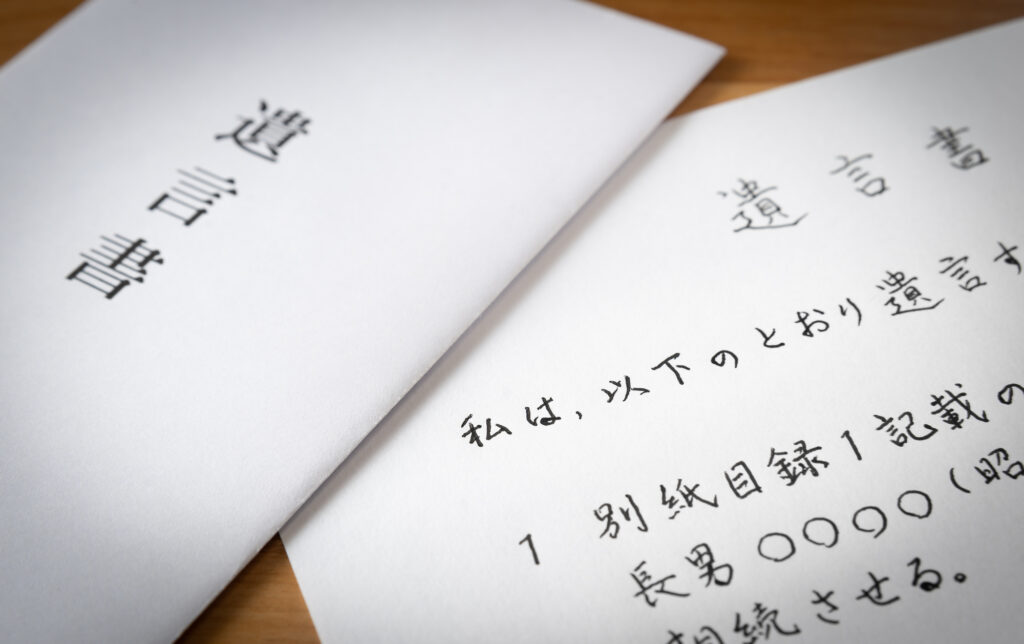 遺言書
遺言書
私は，以下のとおり遺言す
1 別紙目録1記載の
長男○○○○（昭
相続させる。